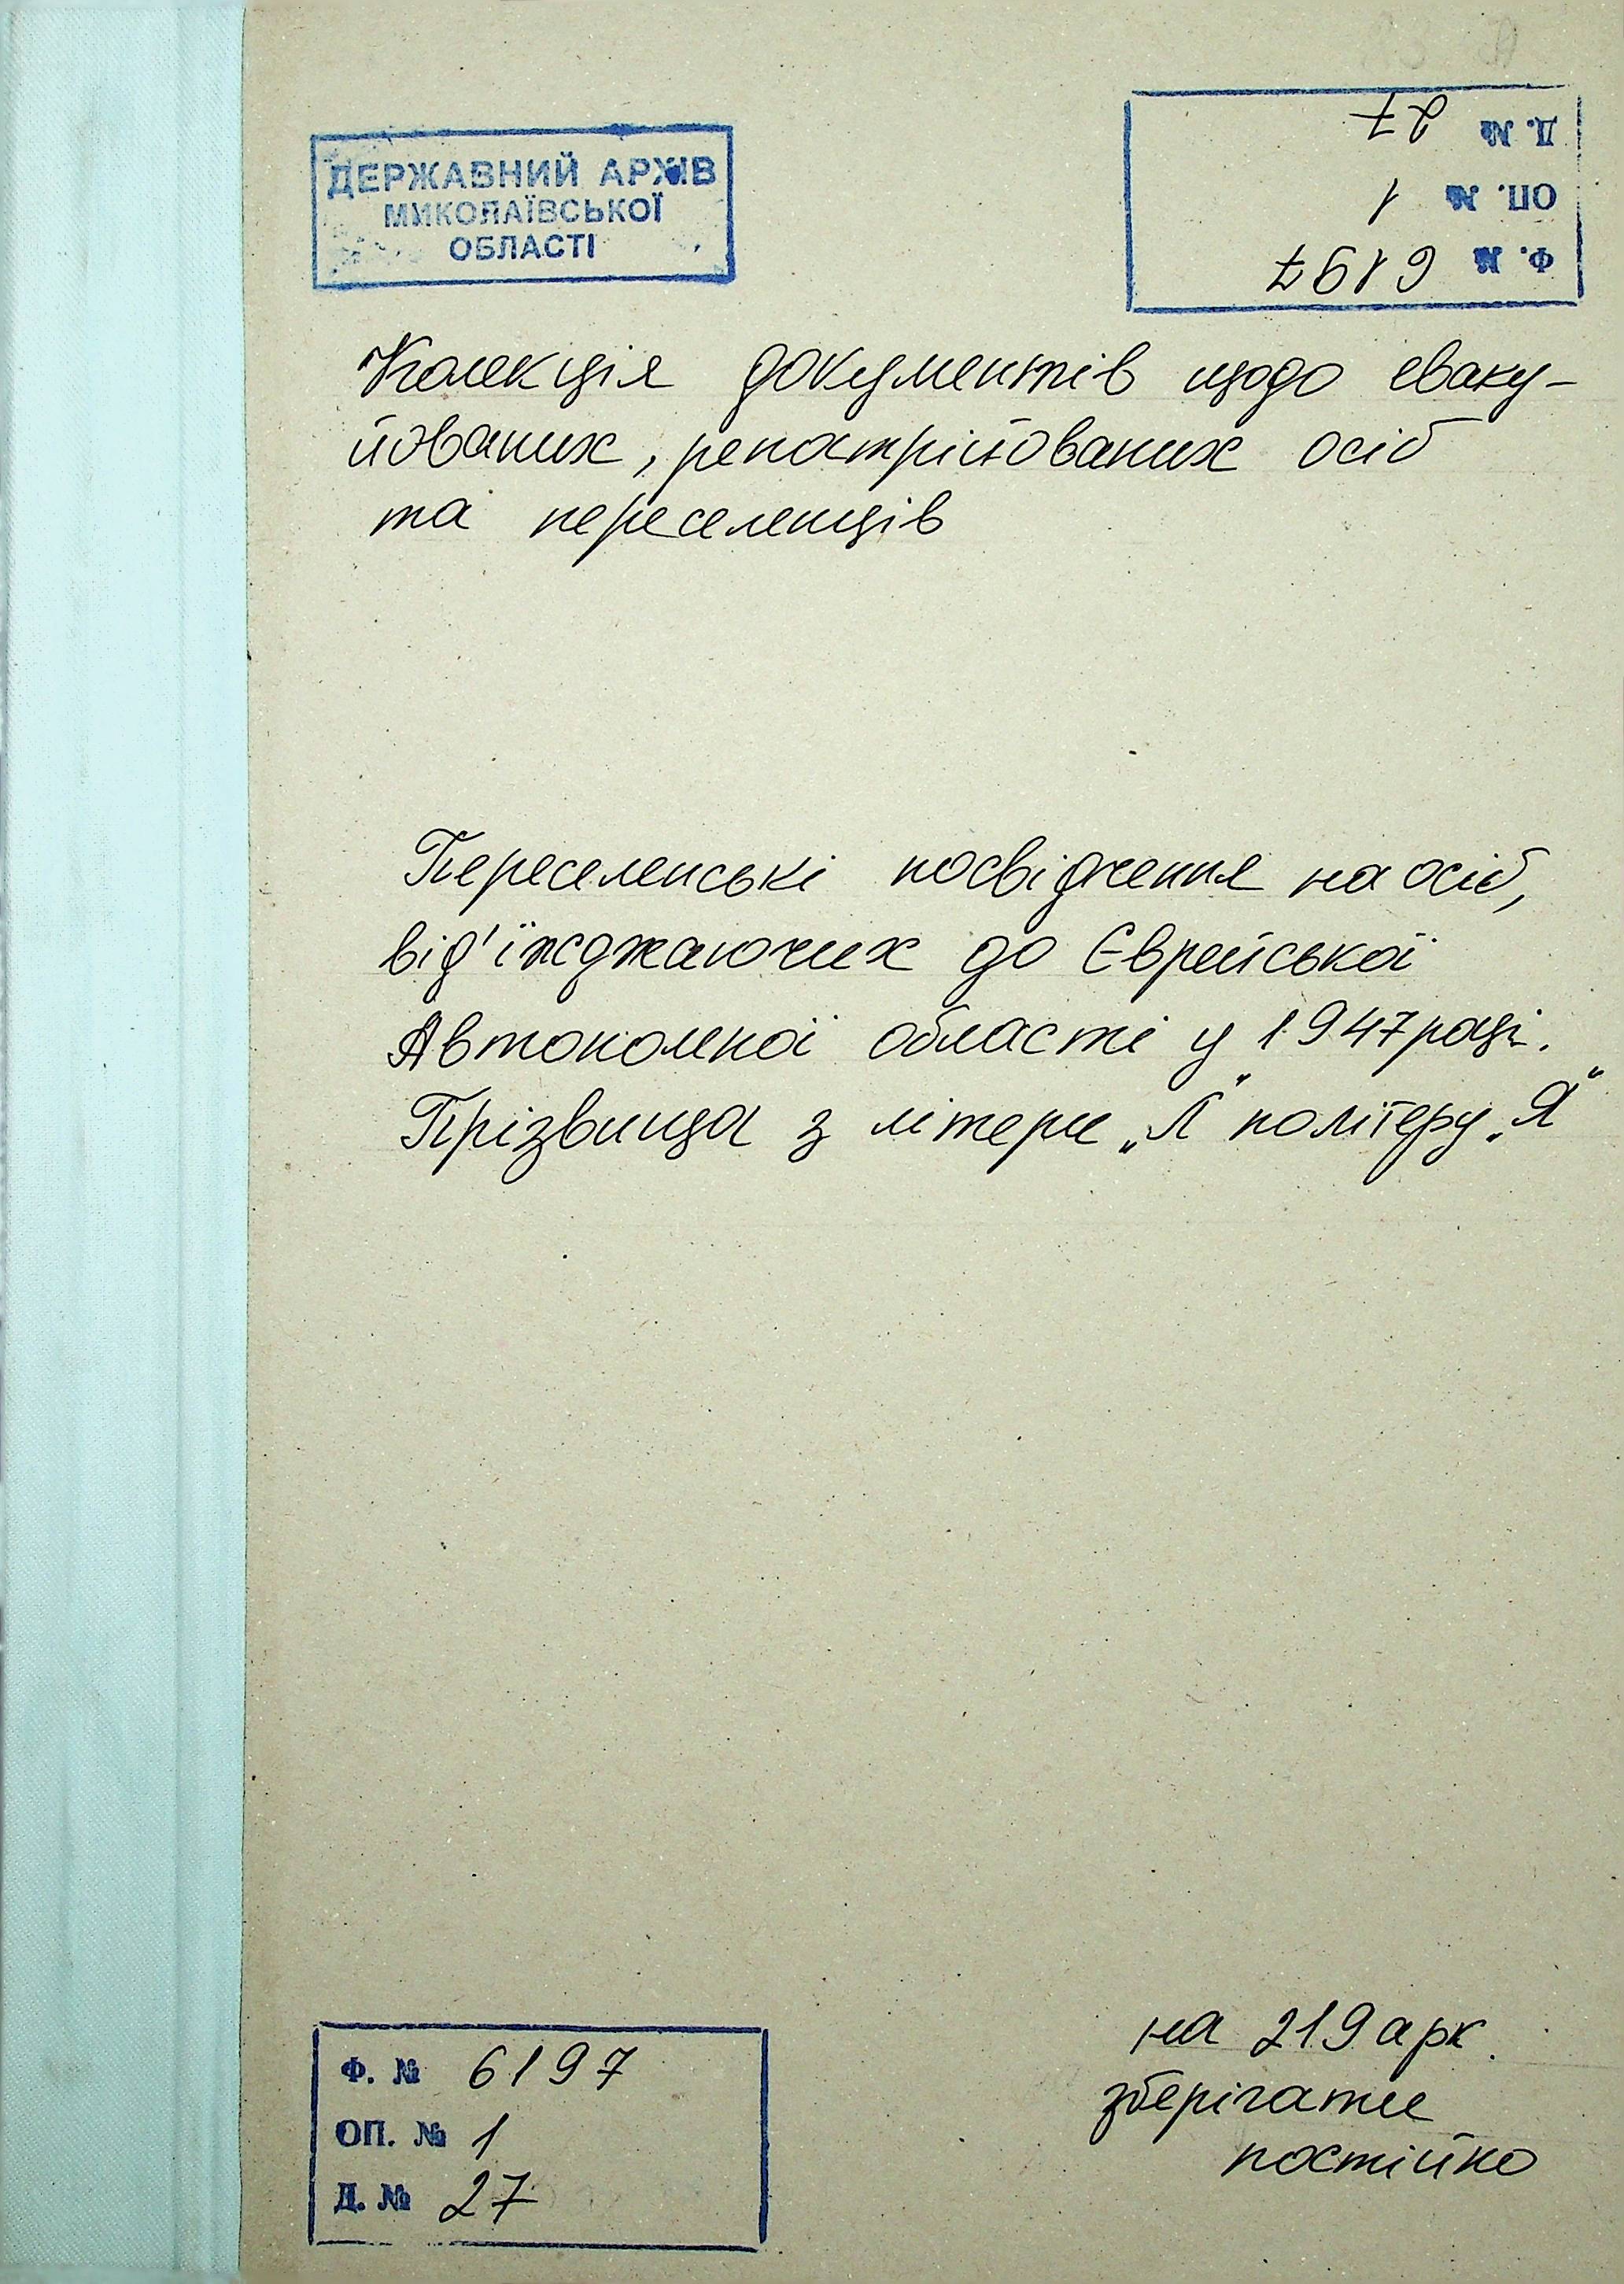 ДЕРЖАВНИЙ АРХІВ
МИКОЛАЇВСЬКОЇ
ОБЛАСТІ
Д. № 27
ОП. № 1
Ф. № 6197
Колекція документів щодо еваку-
йованих, репатрійованих осіб
та переселенців
Переселенські посвідчення на осіб,
від'їжджаючих до Єврейської
Автономної області у 1947 році.
Прізвища з літери „Л" по літеру „Я"
на 219 арк.
зберігати
постійно
Ф. № 6197
ОП. № 1
Д. № 27